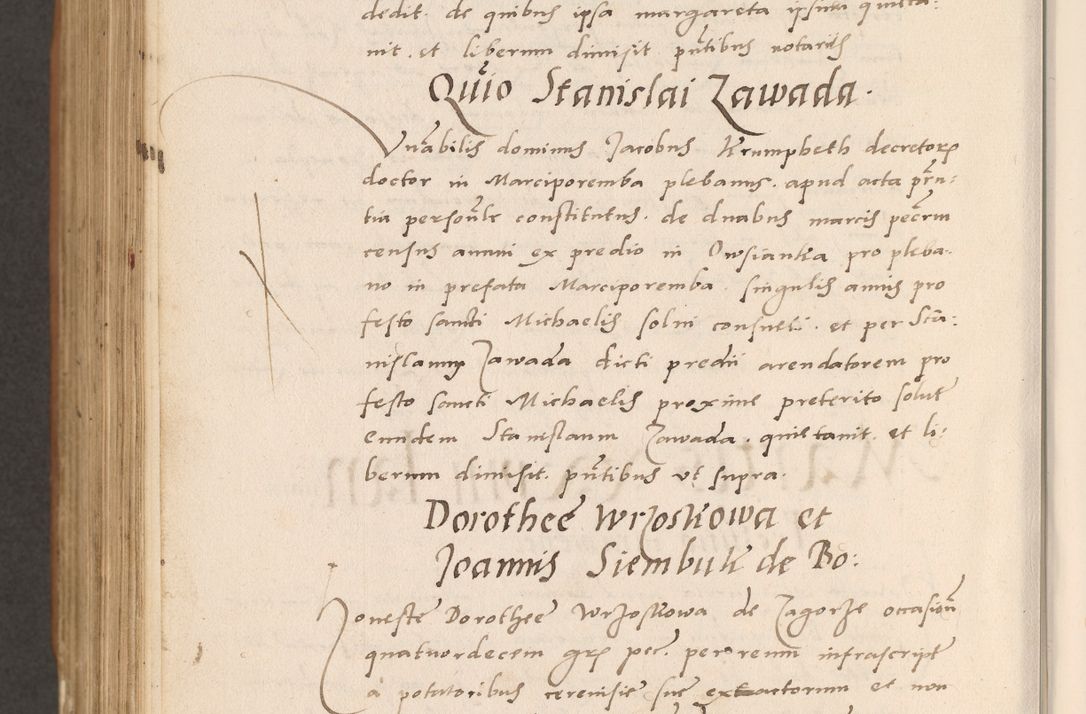 dedit. de quibus ipsa margareta ipsum quieta:
uit. et liberum dimisit pntibus notariis
Quio Stanislai Zawada.
Vnabilis dominus Jacobus Krumpbeth decretorum
doctor in Marciporemba plebanus. apud acta prn:
tia personlr constitutus. de duabus marcis pecrm
census annui ex predio in Owsianka pro pleba-
no in prefata Marciporemba. singulis annis pro
festo sancti Michaelis solui consueti. et per Sta:
nislaum Zawada dicti predii arendatorem pro
festo sancti Michaelis proxime preterito solut
eundem Stanislaum Zawada. quietauit. et li:
berum dimisit. pntibus vt supra.
Dorothee Wrzoskowa et
Joannis Siembuli de Bo:
Honeste Dorothee Wrzoskowa de Zagorze occasion
quatuordecem gr pec. per reum infrascript
a potatoribus cereuisie sue extactorum et non